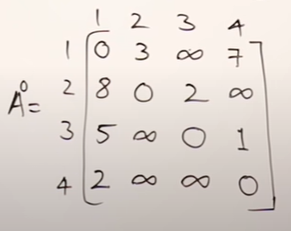 1 2 3 4
1 0 3 ∞ 7
A⁰= 2 8 0 2 ∞
3 5 ∞ 0 1
4 2 ∞ ∞ 0